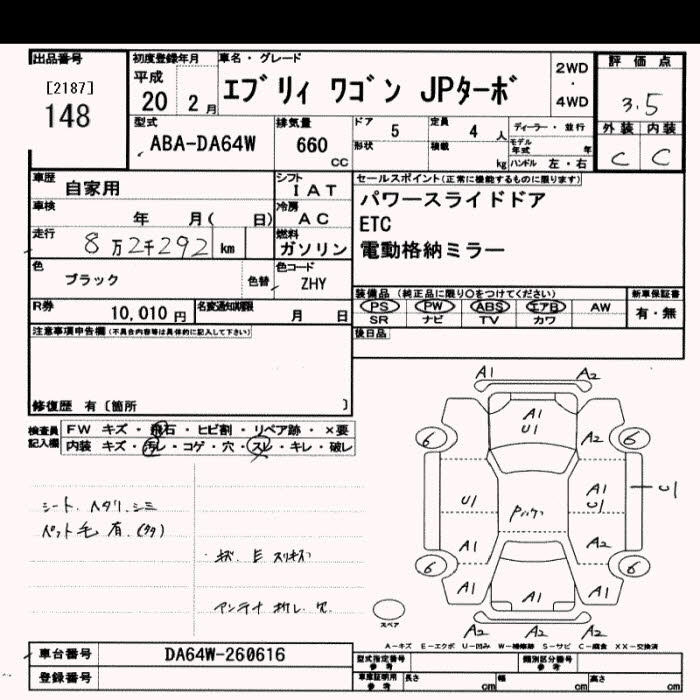 出品番号
[2187]
148
初度登録年月
平成
20 2月
車名・グレード
エブリィ ワゴン JPターボ
2WD
・
4WD
評価点
3.5
外装 内装
C C
型式
ABA-DA64W
排気量
660
CC
ドア 5
形状
定員 4 人
積載 kg
ディーラー・並行
モデル年式 年
ハンドル 左・右
車歴 自家用
シフト
IAT
車検 年 月( 日)
冷房
AC
走行 8万2千292 km
燃料
ガソリン
セールスポイント(正常に機能するものに限ります)
パワースライドドア
ETC
電動格納ミラー
色 ブラック
色替
色コード
ZHY
R券 10,010円
名変通知期限 月 日
装備品 (純正品に限り〇をつけてください)
PS PW ABS エアB AW
SR ナビ TV カワ
新車保証書
有・無
後日品
注意事項申告欄(不具合内容等は具体的に記入して下さい)
修復歴 有〔箇所 〕
検査員記入欄
FW キズ・飛石・ヒビ割・リペア跡・×要
内装 キズ・汚レ・コゲ・穴・スレ・キレ・破レ
シート ヘタリ シミ
ペット毛 有
アンテナ 折レ 穴
A1 A2
A1
U1
A2
6 6
U1
A1
U1
U1
A1
A2
6 6
A1 A1 A1
A2 A2 A2
スペア
A-キズ E-エクボ U-凹み W-補修跡 S-サビ C-腐食 XX-交換済
車台番号 DA64W-260616
登録番号
型式指定番号
参考
類別区分番号
参考
車庫証明用
参考
長さ cm
幅 cm
高さ cm